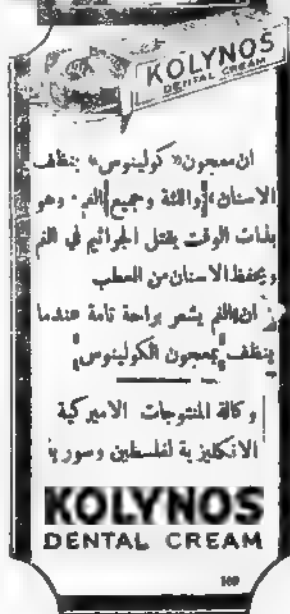 KOLYNOS
DENTAL CREAM
ان معجون «كولينوس» ينظف
الاسنان واللثة وجميع الفم. وهو
بذات الوقت يقتل الجراثيم في الفم
ويحفظ الاسنان من العطب
ان الفم يشعر براحة تامة عندما
ينظف بمعجون الكولينوس
وكالة المنتوجات الاميركية
الانكليزية لفلسطين وسوريا
KOLYNOS
DENTAL CREAM